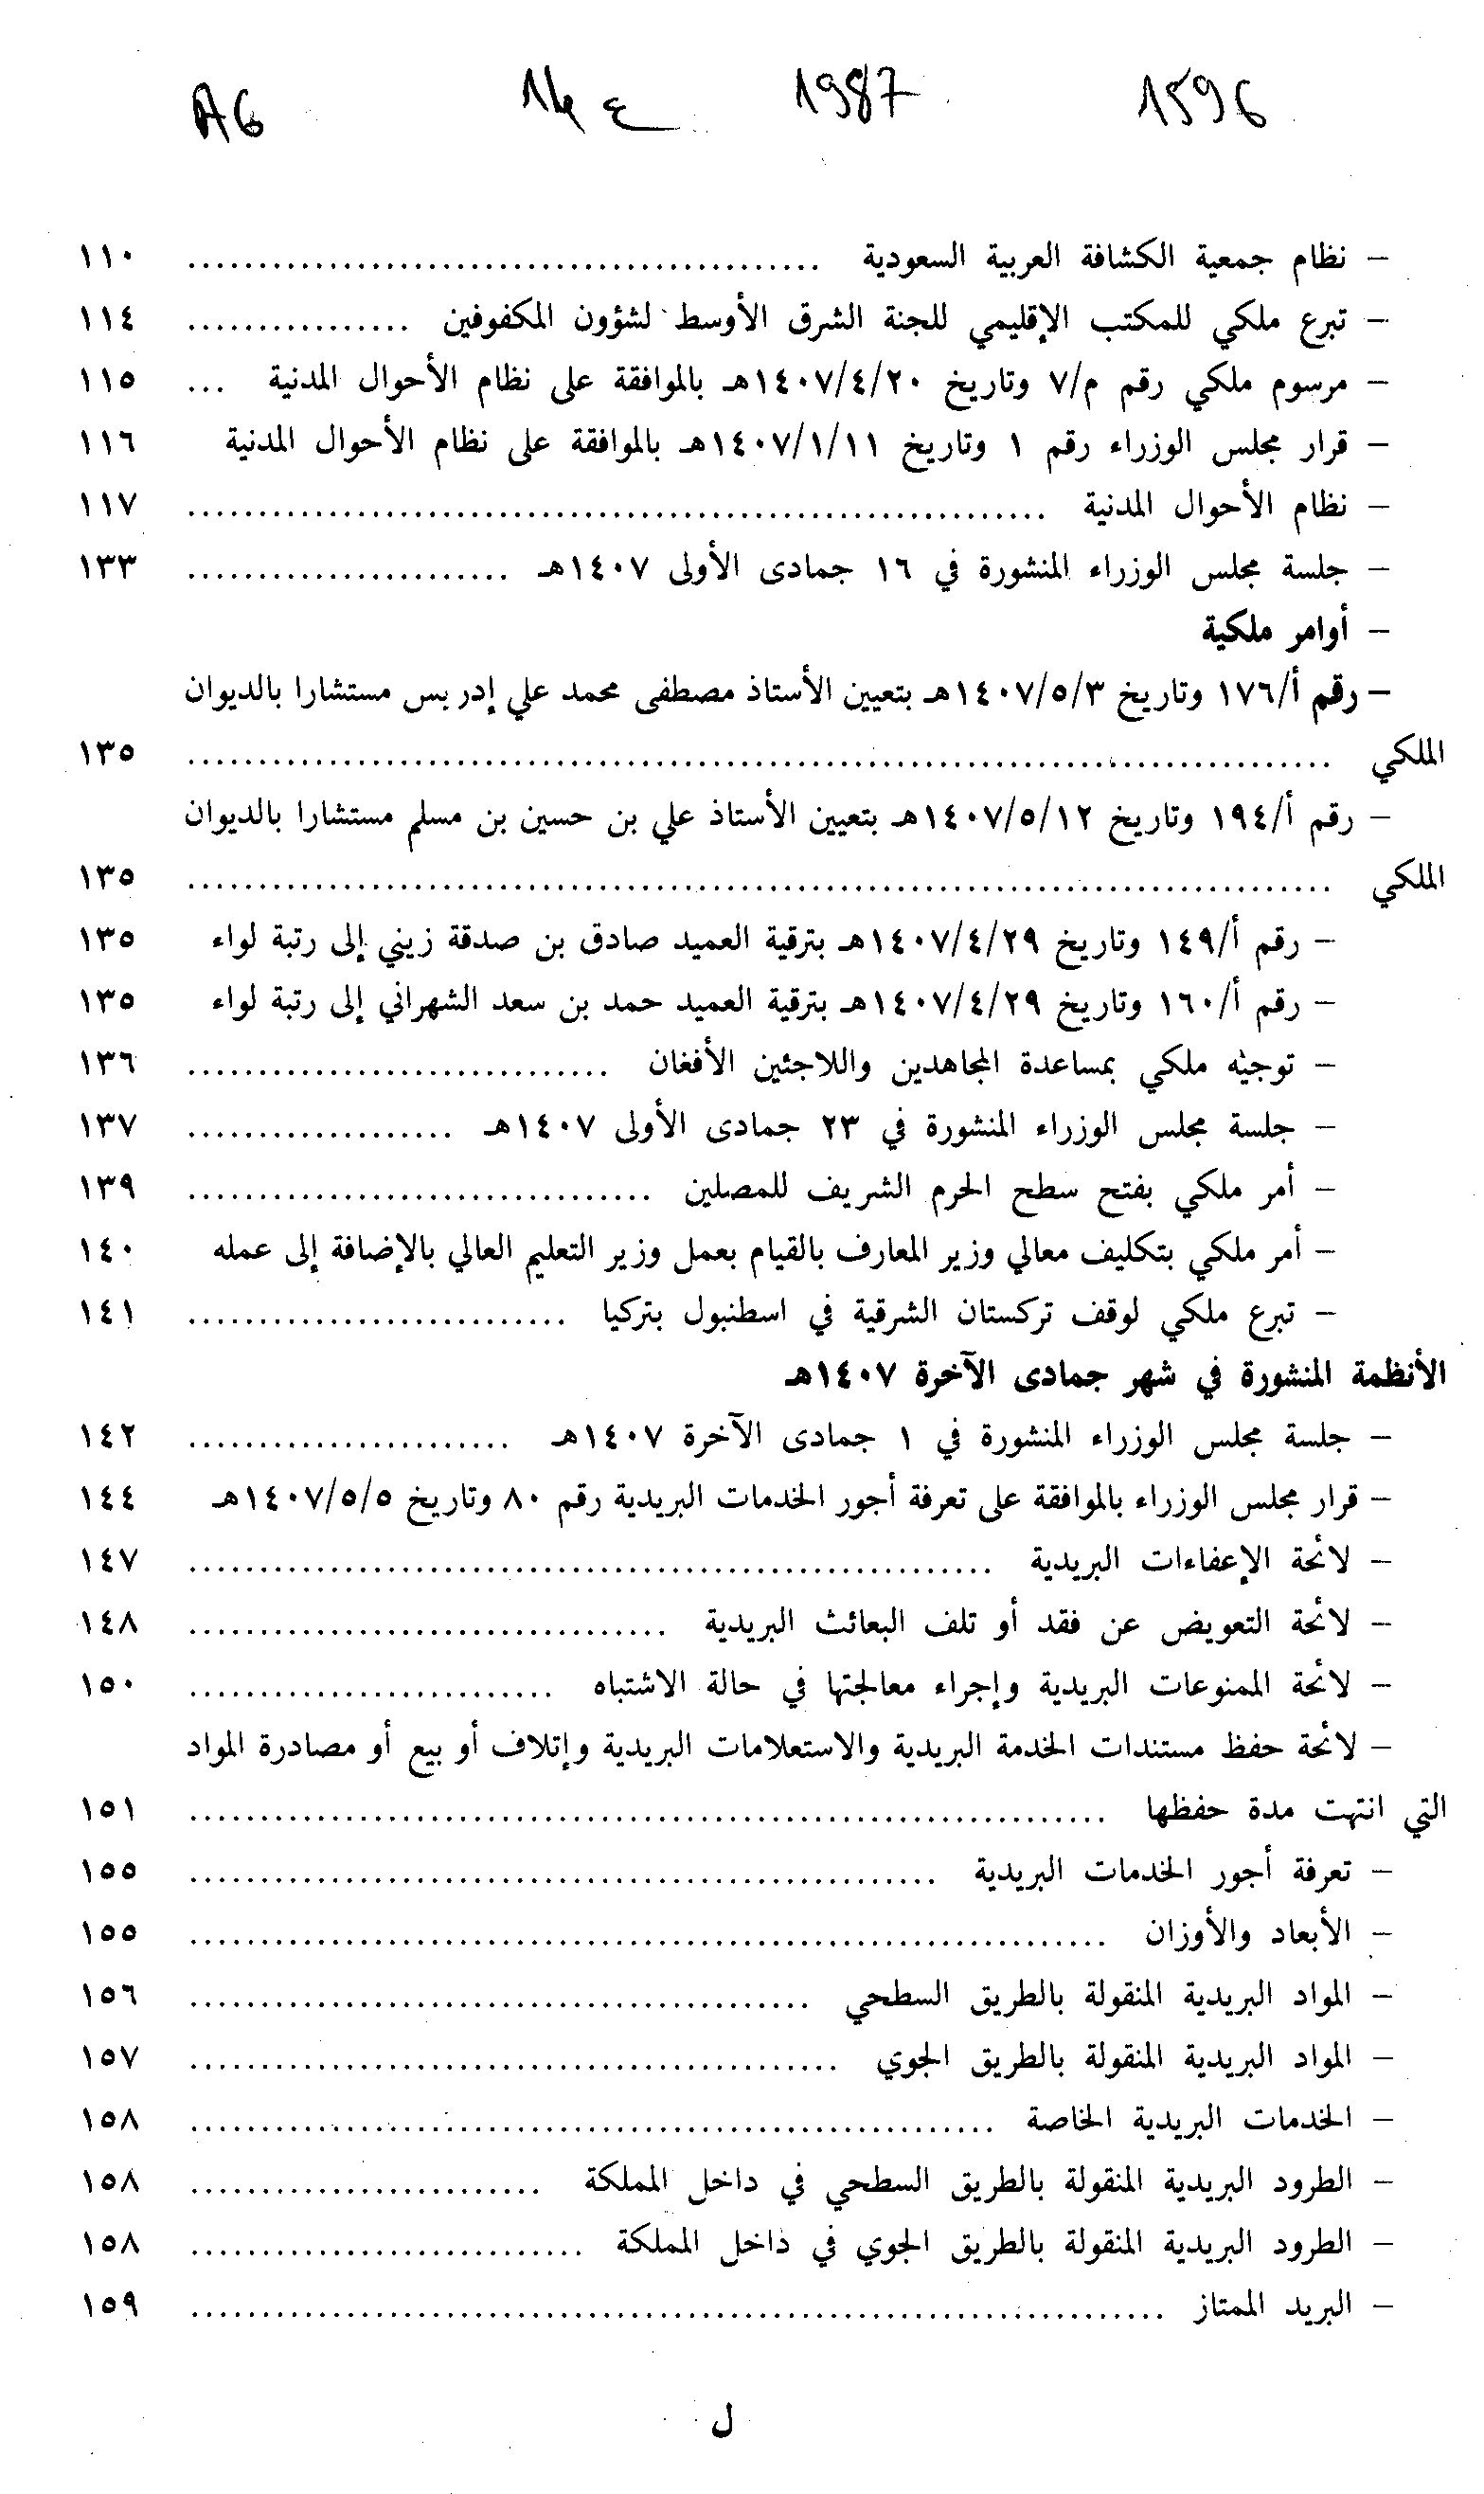 1596 1987 ع 14 AG
– نظام جمعية الكشافة العربية السعودية ........ ١١٠
– تبرع ملكي للمكتب الإقليمي للجنة الشرق الأوسط لشؤون المكفوفين ........ ١١٤
– مرسوم ملكي رقم م/٧ وتاريخ ١٤٠٧/٤/٢٠هـ بالموافقة على نظام الأحوال المدنية ... ١١٥
– قرار مجلس الوزراء رقم ١ وتاريخ ١٤٠٧/١/١١هـ بالموافقة على نظام الأحوال المدنية ١١٦
– نظام الأحوال المدنية ........ ١١٧
– جلسة مجلس الوزراء المنشورة في ١٦ جمادى الأولى ١٤٠٧هـ ........ ١٣٣
– أوامر ملكية
– رقم أ/١٧٦ وتاريخ ١٤٠٧/٥/٣هـ بتعيين الأستاذ مصطفى محمد علي إدريس مستشارا بالديوان
الملكي ........ ١٣٥
– رقم أ/١٩٤ وتاريخ ١٤٠٧/٥/١٢هـ بتعيين الأستاذ علي بن حسين بن مسلم مستشارا بالديوان
الملكي ........ ١٣٥
– رقم أ/١٤٩ وتاريخ ١٤٠٧/٤/٢٩هـ بترقية العميد صادق بن صدقة زيني إلى رتبة لواء ١٣٥
– رقم أ/١٦٠ وتاريخ ١٤٠٧/٤/٢٩هـ بترقية العميد حمد بن سعد الشهراني إلى رتبة لواء ١٣٥
– توجيه ملكي بمساعدة المجاهدين واللاجئين الأفغان ........ ١٣٦
– جلسة مجلس الوزراء المنشورة في ٢٣ جمادى الأولى ١٤٠٧هـ ........ ١٣٧
– أمر ملكي بفتح سطح الحرم الشريف للمصلين ........ ١٣٩
– أمر ملكي بتكليف معالي وزير المعارف بالقيام بعمل وزير التعليم العالي بالإضافة إلى عمله ١٤٠
– تبرع ملكي لوقف تركستان الشرقية في اسطنبول بتركيا ........ ١٤١
الأنظمة المنشورة في شهر جمادى الآخرة ١٤٠٧هـ
– جلسة مجلس الوزراء المنشورة في ١ جمادى الآخرة ١٤٠٧هـ ........ ١٤٢
– قرار مجلس الوزراء بالموافقة على تعرفة أجور الخدمات البريدية رقم ٨٠ وتاريخ ١٤٠٧/٥/٥هـ ١٤٤
– لائحة الإعفاءات البريدية ........ ١٤٧
– لائحة التعويض عن فقد أو تلف البعائث البريدية ........ ١٤٨
– لائحة الممنوعات البريدية وإجراء معالجتها في حالة الاشتباه ........ ١٥٠
– لائحة حفظ مستندات الخدمة البريدية والاستعلامات البريدية وإتلاف أو بيع أو مصادرة المواد
التي انتهت مدة حفظها ........ ١٥١
– تعرفة أجور الخدمات البريدية ........ ١٥٥
– الأبعاد والأوزان ........ ١٥٥
– المواد البريدية المنقولة بالطريق السطحي ........ ١٥٦
– المواد البريدية المنقولة بالطريق الجوي ........ ١٥٧
– الخدمات البريدية الخاصة ........ ١٥٨
– الطرود البريدية المنقولة بالطريق السطحي في داخل المملكة ........ ١٥٨
– الطرود البريدية المنقولة بالطريق الجوي في داخل المملكة ........ ١٥٨
– البريد الممتاز ........ ١٥٩
ل